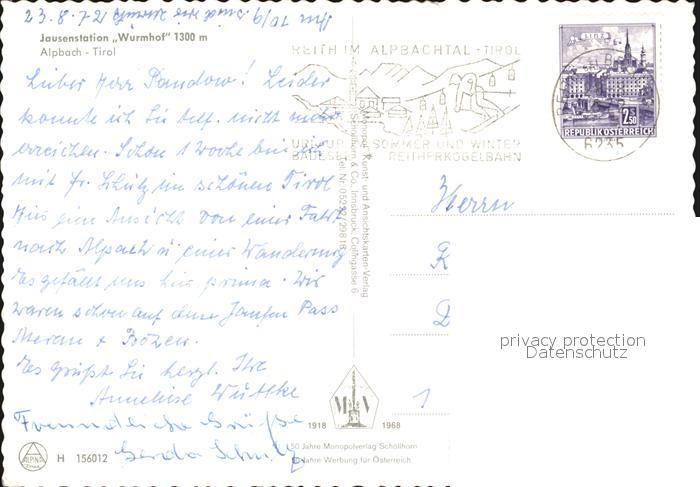 23.8.72
Jausenstation „Wurmhof" 1300 m
Alpbach - Tirol
Lieber Herr Pandow! Leider
konnte ich Sie telf. nicht mehr
erreichen. Schon 1 Woche bin ich
mit Fr. Schulz im schönen Tirol
Hier eine Ansicht von einer Fahrt
nach Alpach u einer Wanderung
Es gefällt uns hier prima. Wir
waren schon auf dem Jaufen Pass
Meran + Bozen.
Es grüßt Sie herzl. Ihre
Anneliese Wuttke
Freundliche Grüße
Gerda Schulz
H 156012
ALPINA
Monopol Kunst- und Ansichtskarten-Verlag
Schöllhorn & Co. Innsbruck, Colingasse 6,
Tel Nr. 05222/29816
1918 MV 1968
50 Jahre Monopolverlag Schöllhorn
50 Jahre Werbung für Österreich
REITH IM ALPBACHTAL · TIROL
URLAUB IM SOMMER UND WINTER
BADESEE REITHERKOGELBAHN
LINZ
2.50
REPUBLIK ÖSTERREICH
6235
Herrn
K
D
1
privacy protection
Datenschutz